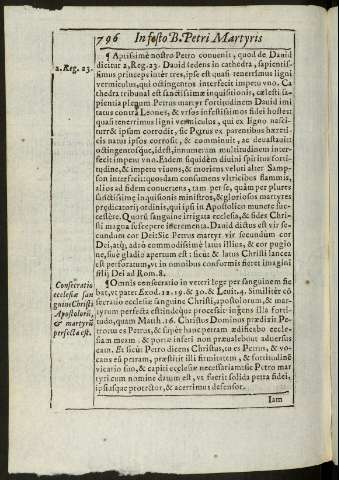 796 In festo B. Petri Martyris
2. Reg. 23.
¶ Aptissimè nostro Petro conuenit, quod de Dauid
dicitur 2. Reg. 23. Dauid sedens in cathedra, sapientis-
simus princeps intèr tres, ipse est quasi tenerrimus ligni
vermiculus, qui octingentos interfecit impetu vno. Ca
thedra tribunal est sanctissimæ inquisitionis, cælesti sa-
pientia plenum Petrus martyr fortitudinem Dauid imi
tatus contra Leones, & vrsos infestissimos fidei hostes:
quasi tenerrimus ligni vermiculus, qui ex ligno nasci-
tur & ipsum corrodit, sic Petrus ex parentibus hæreti-
cis natus ipsos corrosit, & comminuit, ac deuastauit
octingentosque, idest, innumeram multitudinem inter-
fecit impetu vno. Eadem siquidem diuini spiritus fortì-
tudine, & impetu viuens, & moriens veluti alter Samp-
son interfecit: quosdam consumens vltricibus flammis,
alios ad fidem conuertens, tam per se, quàm per plures
sanctissimæ inquisitionis ministros, & gloriosos martyres
prædicatorij ordinis, qui ipsi in Apostolico munere suc-
cesère. Quorũ sanguine irrigata ecclesia, & fides Chri-
sti magna suscepere incrementa. Dauid dictus est vir se-
cundum cor Dei: Sic Petrus martyr vir secundum cor
Dei, atq; adeò commodissimè latus illius, & cor pugio
ne, siue gladio apertum est: sicut & latus Christi lancea
est perforatum, vt in omnibus conformis fieret imagini
filij Dei ad Rom. 8.
Consecratio
ecclesiæ san
guine Christi
Apostolorũ,
& martyrũ
perfecta est.
¶ Omnis consecratio in veteri lege per sanguinem fie
bat, vt patet Exod. 12. 19. & 30. & Leuit. 4. Similitèr cõ
secratio ecclesiæ sanguine Christi, apostolorum, & mar-
tyrum perfecta est: indeque processit ingens illa forti-
tudo, quam Matth. 16. Christus Dominus prædixit Pe-
tro: tu es Petrus, & supèr hanc petram ædificabo eccle-
siam meam: & portæ inferi non præualebunt aduersus
eam. Et sicut Petro dicens Christus, tu es Petrus, & vo-
cans eũ petram, præstitit illi firmitatem, & fortitudinẽ
vicario suo, & capiti ecclesiæ necessariam: sic Petro mar
tyri cum nomine datum est, vt fuerit solida petra fidei,
ipsiusque protector, & acerrimus defensor.
Iam